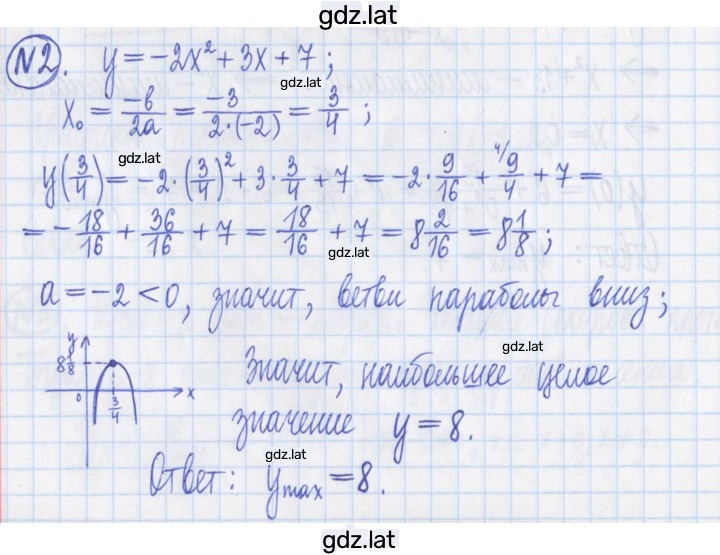 gdz.lat
№2. y = -2x² + 3x + 7;
gdz.lat
x₀ = -b/2a = -3/(2·(-2)) = 3/4;
gdz.lat
gdz.lat
y(3/4) = -2·(3/4)² + 3·3/4 + 7 = -2·9/16 + ⁴⁄9/4 + 7 =
= -18/16 + 36/16 + 7 = 18/16 + 7 = 8 2/16 = 8 1/8;
gdz.lat
a = -2 < 0, значит, ветви параболы вниз;
8 1/8
y
0
3/4
x
gdz.lat
Значит, наибольшее целое
значение y = 8.
gdz.lat
Ответ: y max = 8.
gdz.lat